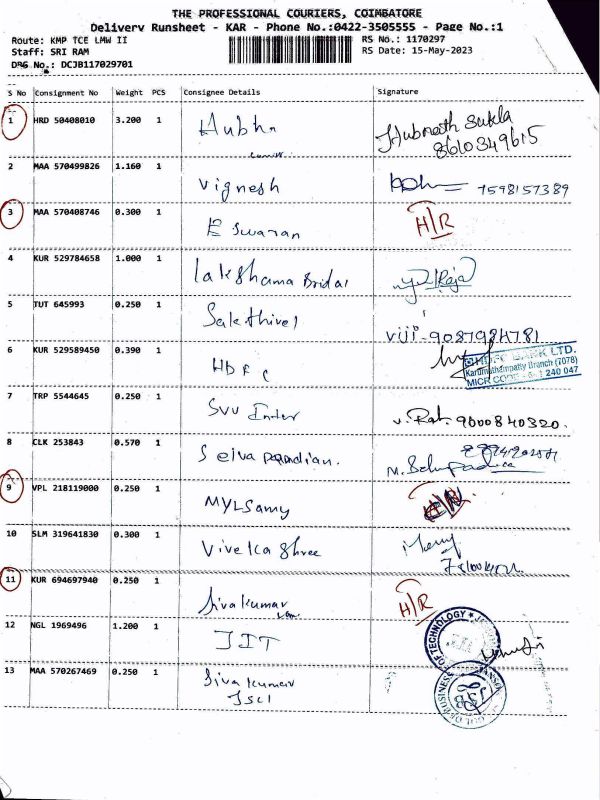 THE PROFESSIONAL COURIERS, COIMBATORE
Delivery Runsheet - KAR - Phone No.:0422-3505555 - Page No.:1
Route: KMP TCE LMW II
RS No.: 1170297
Staff: SRI RAM
RS Date: 15-May-2023
DRS No.: DCJB117029701
S No Consignment No Weight PCS Consignee Details Signature
1 HRD 50408010 3.200 1 Hubhn
Hubnath Sukla
8610349615
2 MAA 570499826 1.160 1 Vignesh
7598157389
3 MAA 570408746 0.300 1 E Swaran H/R
4 KUR 529784658 1.000 1 Lakshama Bridal Raja
5 TUT 645993 0.250 1 Sakthivel
Viji-9087984781
6 KUR 529589450 0.390 1 HDFC
HDFC BANK LTD.
Karumathampatty Branch (7078)
MICR CODE 641 240 047
7 TRP 5544645 0.250 1 SVV Inter
9000840320.
8 CLK 253843 0.570 1 Selva pandian.
9 VPL 218119000 0.250 1 MYLSamy H/R
10 SLM 319641830 0.300 1 Viveka Shree
11 KUR 694697940 0.250 1 Sivakumar H/R
12 NGL 1969496 1.200 1 JIT
OF TECHNOLOGY
13 MAA 570267469 0.250 1 Sivakumar
JSCI
BUSINESS
JSB